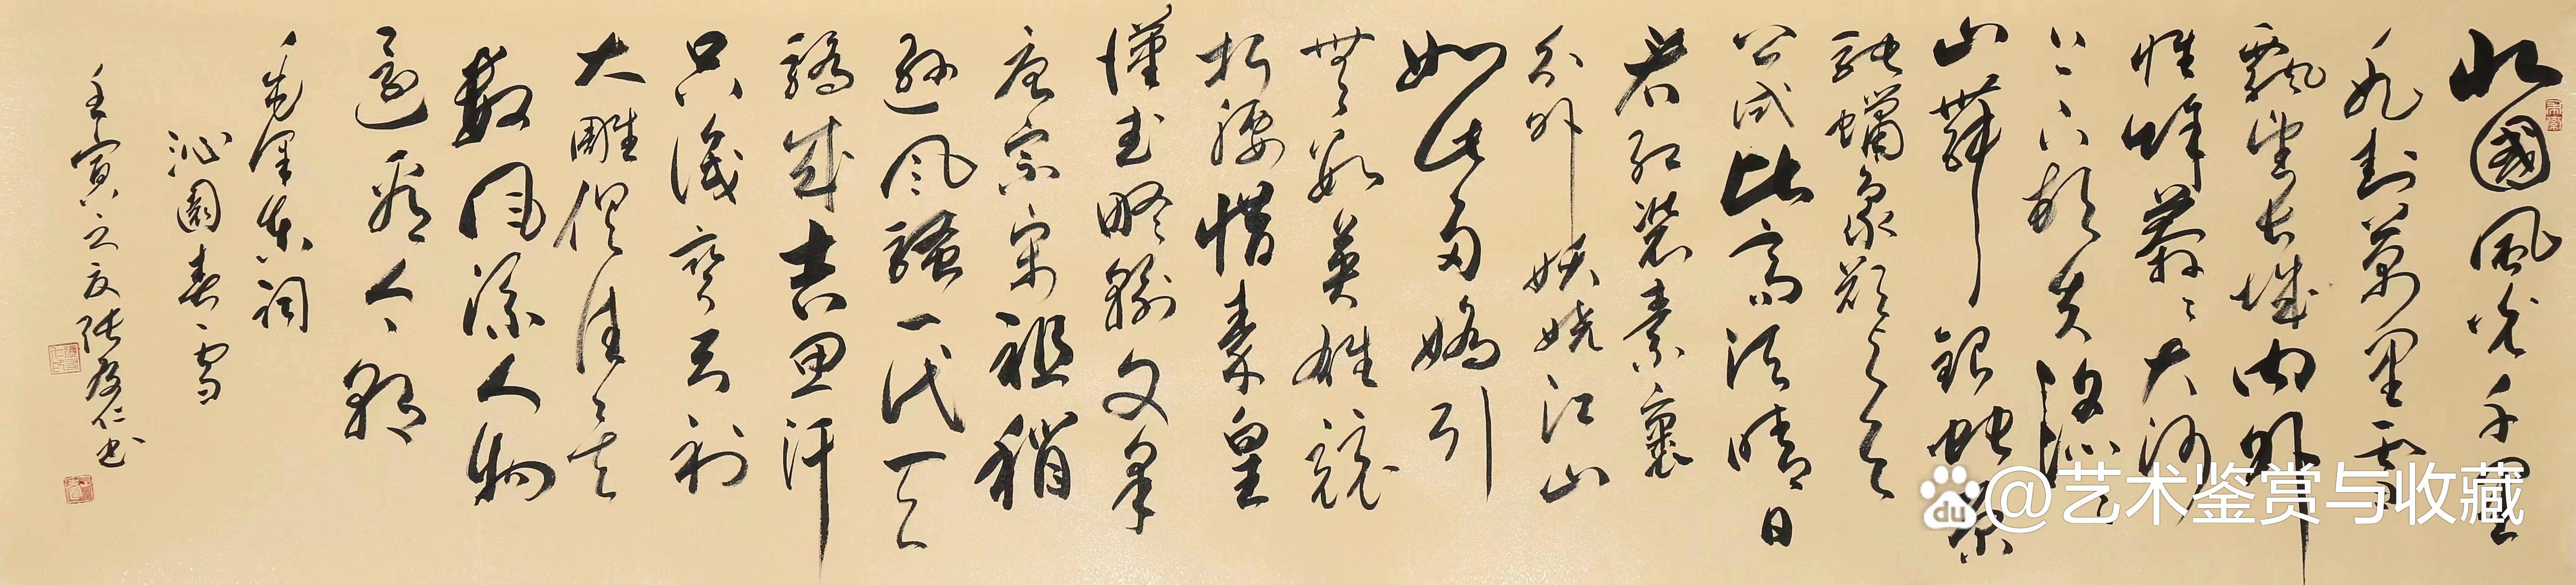 北國風光千里
冰封萬里雪
飄望长城内外
惟餘莽々大河
上下頓失滔々
山舞銀蛇原
馳蠟象欲與天
公試比高須晴日
看紅裝素裹
分外妖嬈江山
如此多嬌引
無數英雄競
折腰惜秦皇
漢武略輸文采
唐宗宋祖稍
遜风騷一代天
驕成吉思汗
只識彎弓射
大雕俱往矣
數风流人物
還看今朝
毛澤东詞
沁園春雪
壬寅之夏張仁书
du @艺术鉴赏与收藏